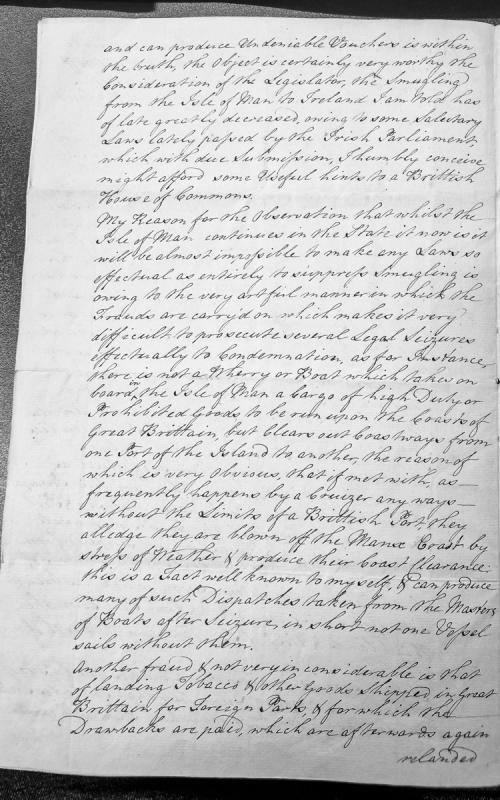 and can produce Undeniable Vouchers is within
the truth, the Object is certainly very worthy the
Consideration of the Legislator, the Smugling
from the Isle of Man to Ireland I am told has
of late greatly decreased, owing to some Salectary
Laws lately passed by the Irish Parliament
which with due Submission, I humbly conceive
might afford some Useful hints to a Brittish
House of Commons.
My Reason for the Observation that whilst the
Isle of Man continues in the State it now is it
will be almost impossible to make any Laws so
effectual as entirely to suppress Smugling is
owing to the very artful manner in which the
Frauds are carry'd on which makes it very
difficult to prosecute several Legal Seizures
effectually to Condemnation, as for Instance,
there is not a Wherry or Boat which takes on
board in the Isle of Man a Cargo of high Duty or
Prohibited Goods to be run upon the Coasts of
Great Brittain, but Clears out Coastways from
one Port of the Island to another, the reason of
which is very Obvious, that if met with, as
frequently happens by a Cruizer any ways
without the Limits of a Brittish Port they
alledge they are blown off the Manx Coast by
stress of Weather & produce their Coast Clearance:
this is a Fact well known to myself, & can produce
many of such Dispatches taken from the Masters
of Boats after Seizure, in short not one Vessel
sails without them.
Another fraud & not very inconsiderable is that
of landing Tobacco & other Goods Shipped in Great
Brittain for Foreign Parts, & for which the
Drawbacks are paid, which are afterwards again
relanded